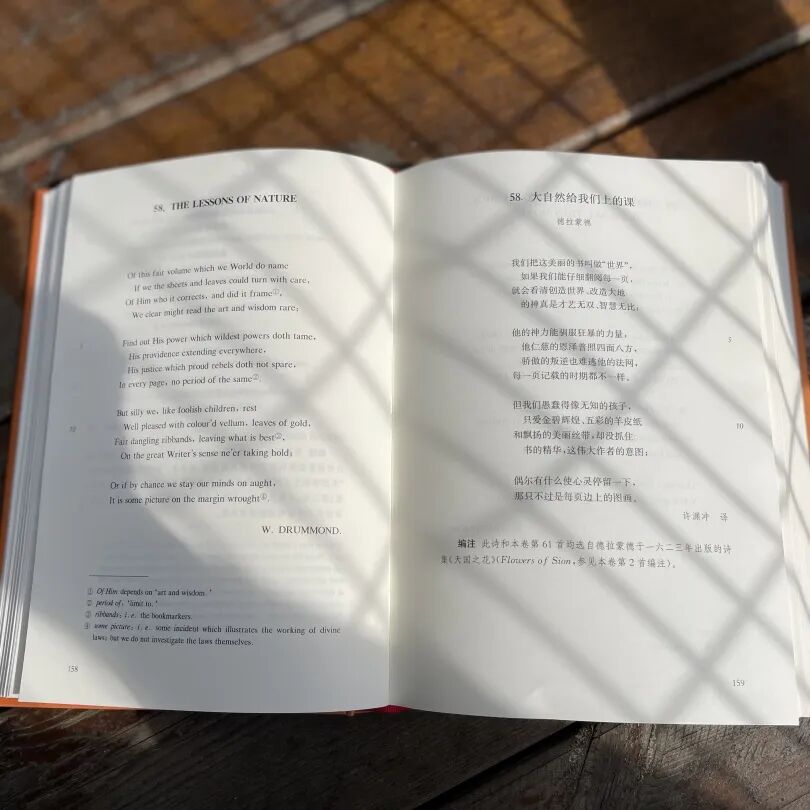 58. THE LESSONS OF NATURE
Of this fair volume which we World do name
If we the sheets and leaves could turn with care,
Of Him who it corrects, and did it frame①,
We clear might read the art and wisdom rare;
Find out His power which wildest powers doth tame,
His providence extending everywhere,
His justice which proud rebels doth not spare,
In every page, no period of the same②.
But silly we, like foolish children, rest
Well pleased with colour'd vellum, leaves of gold,
Fair dangling ribbands, leaving what is best③,
On the great Writer's sense ne'er taking hold;
Or if by chance we stay our minds on aught,
It is some picture on the margin wrought④.
W. DRUMMOND.
① Of Him depends on "art and wisdom. "
② period of, "limit to. "
③ ribbands; i. e. the bookmarkers.
④ some picture; i. e. some incident which illustrates the working of divine
laws; but we do not investigate the laws themselves.
158
58. 大自然给我们上的课
德拉蒙德
我们把这美丽的书叫做“世界”,
如果我们能仔细翻阅每一页,
就会看清创造世界、改造大地
的神真是才艺无双、智慧无比;
他的神力能制服狂暴的力量,
5
他仁慈的恩泽普照四面八方,
骄傲的叛逆也难逃他的法网,
每一页记载的时期都不一样。
但我们愚蠢得像无知的孩子,
只爱金碧辉煌、五彩的羊皮纸
10
和飘扬的美丽丝带,却没抓住
书的精华,这伟大作者的意图;
偶尔有什么使心灵停留一下,
那只不过是每页边上的图画。
许渊冲 译
编注 此诗和本卷第 61 首均选自德拉蒙德于一六二三年出版的诗
集《天国之花》(Flowers of Sion,参见本卷第 2 首编注)。
159